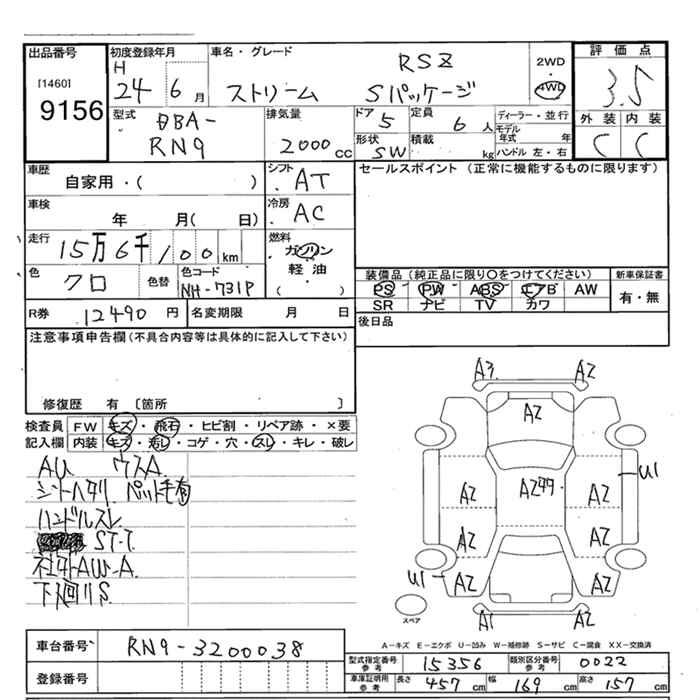 出品番号
[1460]
9156
初度登録年月
H 24 6 月
車名・グレード
RSZ
ストリーム Sパッケージ
2WD
4WD
評価点
3.5
外装 内装
C C
型式
DBA-
RN9
排気量
2000 cc
ドア 5
定員 6 人
形状 SW
積載 kg
ディーラー・並行
モデル年式 年
ハンドル 左・右
車歴
自家用・( )
シフト
AT
車検
年 月( 日)
冷房
AC
走行
15万6千100 km
燃料
ガソリン
軽油
( )
色
クロ
色替
色コード
NH-731P
R券 12490 円
名変期限 月 日
セールスポイント (正常に機能するものに限ります)
装備品 (純正品に限り○をつけてください)
PS PW ABS エアB AW
SR ナビ TV カワ
新車保証書
有・無
後日品
注意事項申告欄(不具合内容等は具体的に記入して下さい)
修復歴 有 〔箇所 〕
検査員記入欄
FW キズ・飛石・ヒビ割・リペア跡・×要
内装 キズ・汚レ・コゲ・穴・スレ・キレ・破レ
AU ウスA
シートヘタリ ペット毛有
ハンドルスレ
ST-T
下廻りS
A3 A2
A2
U1
A2 A299 A2
A2 A2
U1 A2 A2
A1 A2
スペア
A-キズ E-エクボ U-凹み W-補修跡 S-サビ C-腐食 XX-交換済
車台番号 RN9-3200038
登録番号
型式指定番号 参考 15356
類別区分番号 参考 0022
車庫証明用 参考 長さ 457 cm 幅 169 cm 高さ 157 cm